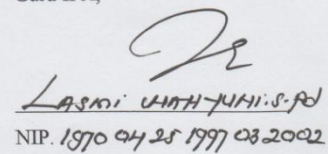 LASMI WAHYUNI.S.Pd
NIP. 1970 04 25 1997 03 2002